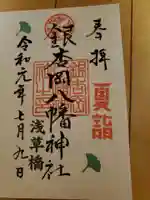 奉拝
夏詣
銀杏岡八幡神社
浅草橋
令和元年七月九日